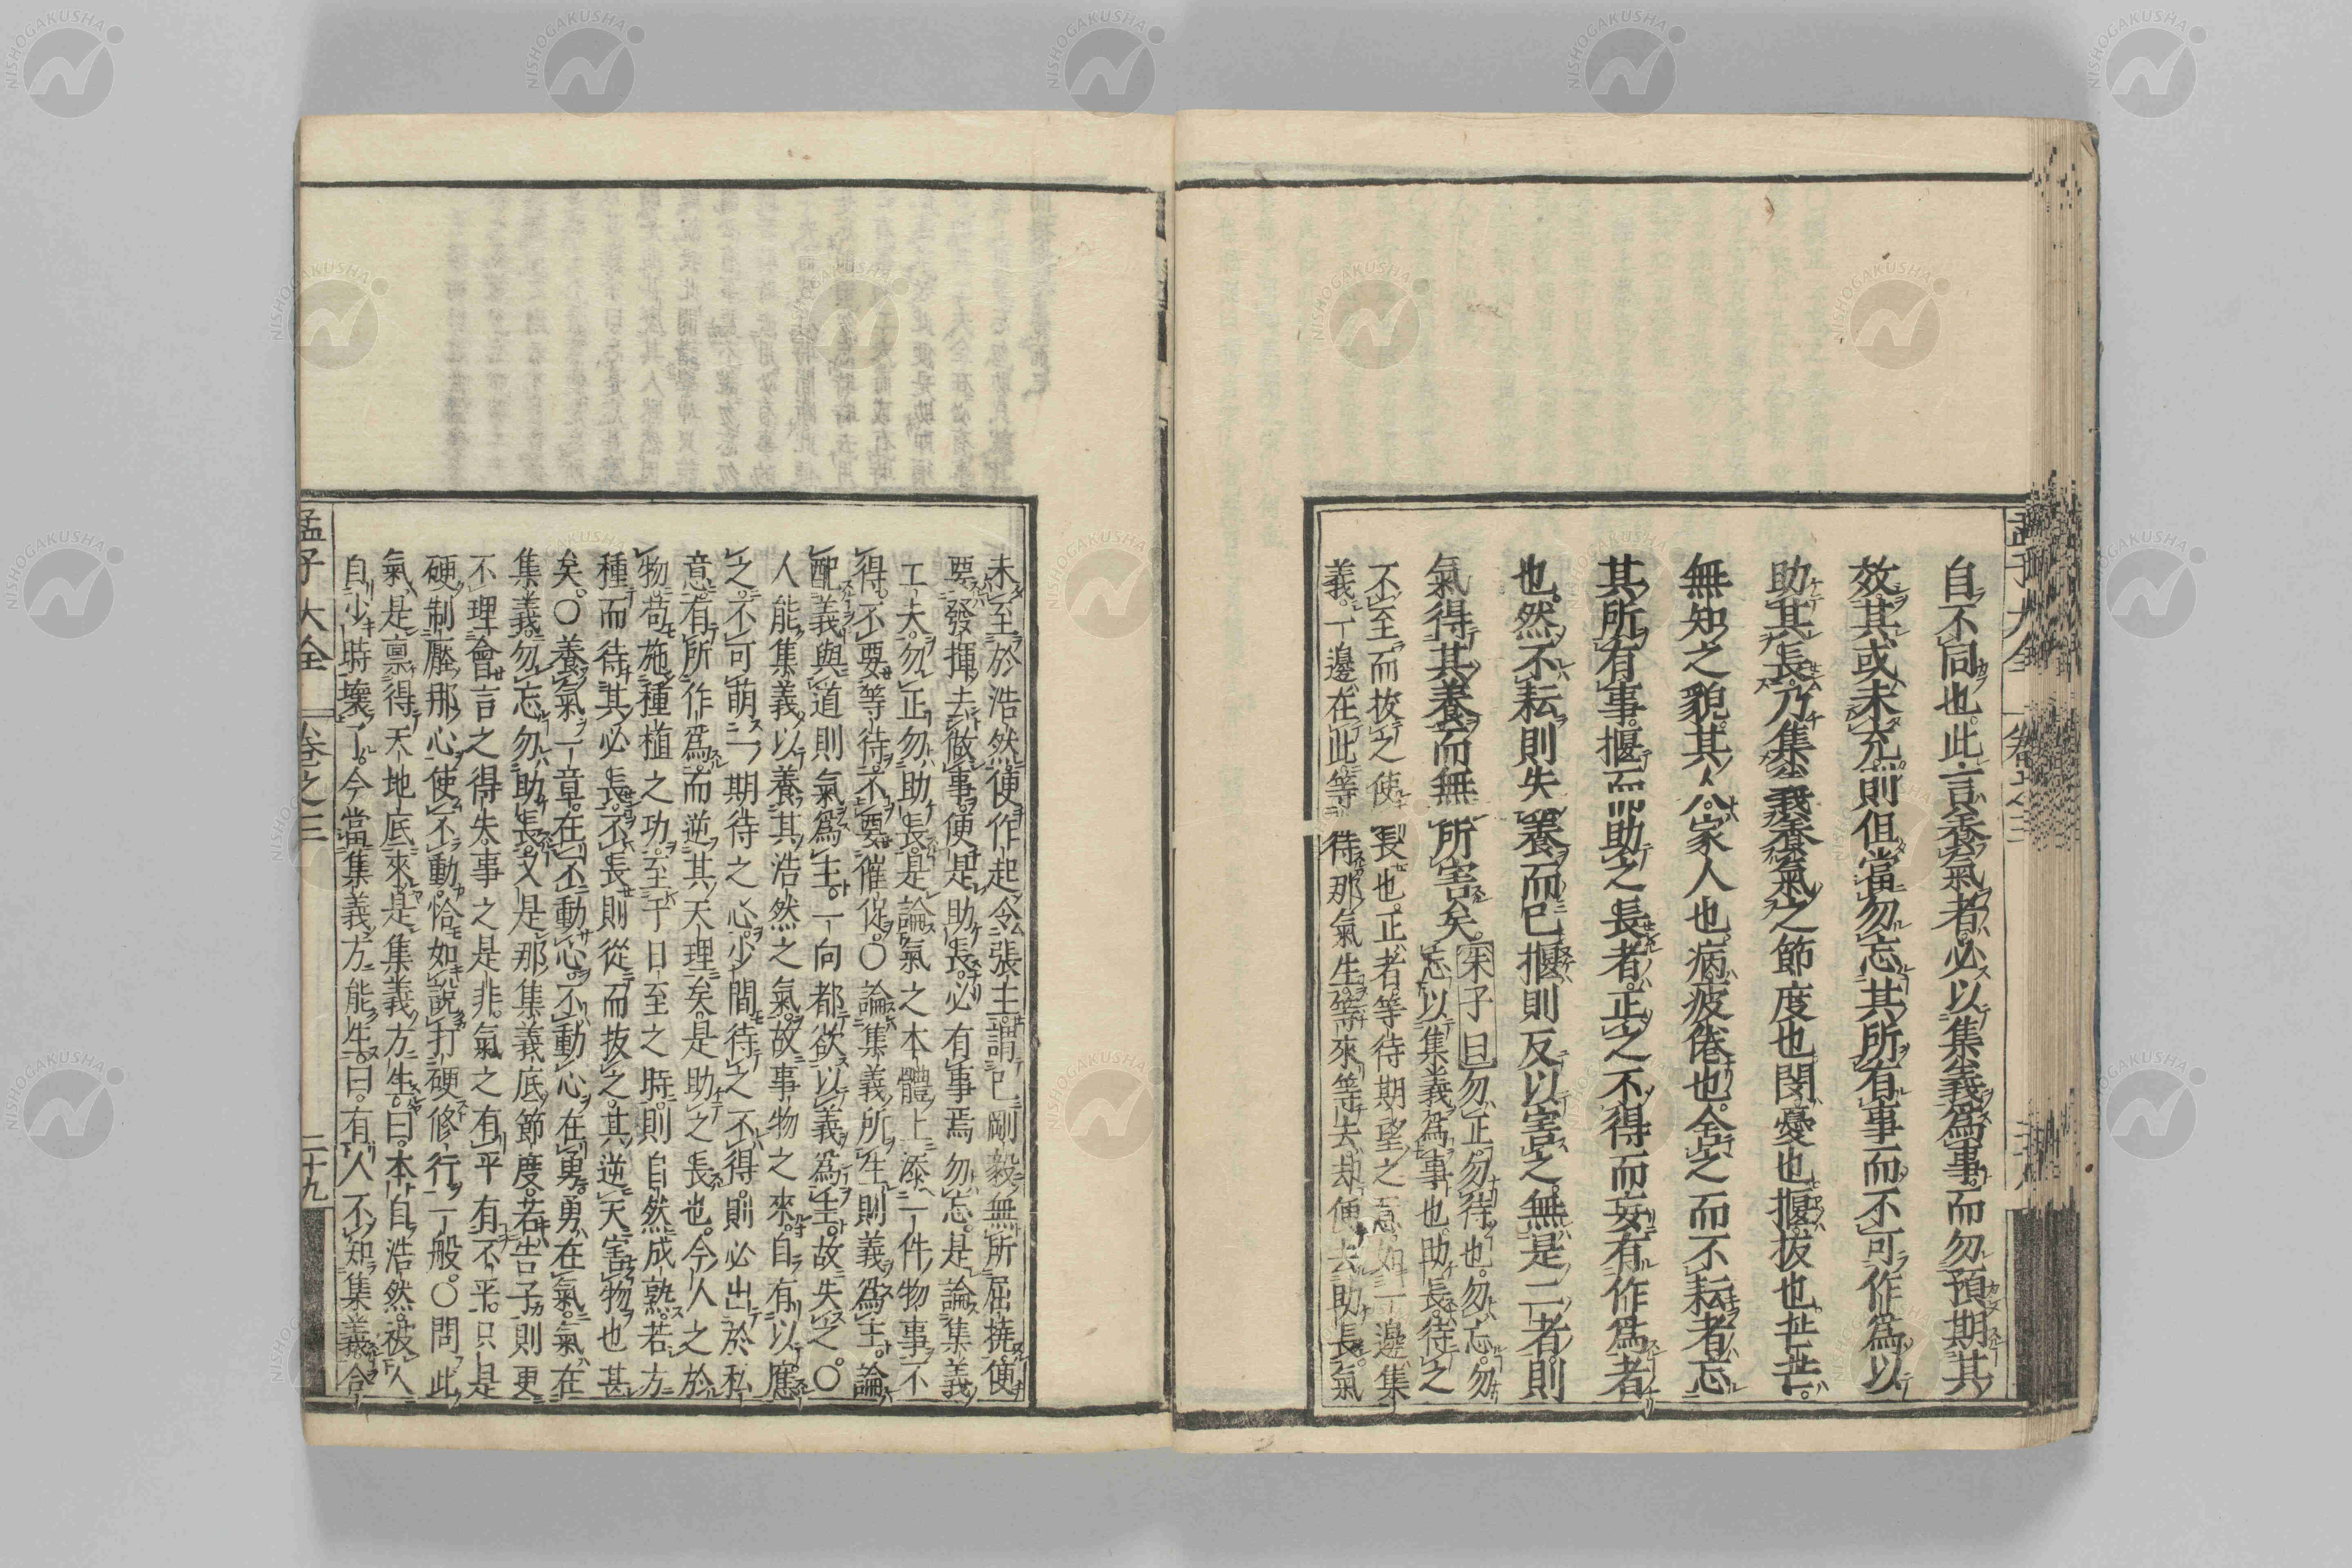 自不同也此言養氣者必以集義爲事而勿預期其
效其或未充則但當勿忘其所有事而不可作爲以
助其長乃集義養氣之節度也閔憂也揠拔也芒芒
無知之貌其人家人也病疲倦也舍之而不耘者忘
其所有事揠而助之長者正之不得而妄有作爲者
也然不耘則失養而已揠則反以害之無是二者則
氣得其養而無所害矣
朱子曰勿正勿待也勿忘勿
忘以集義爲事也助長待之
不至而拔之使長也正者等待期望之意如一邊集
義一邊在此等待那氣生等來等去却便去助長氣
未至於浩然便作起令張主謂已剛毅無所屈撓便
要發揮去做事便是助長必有事焉勿忘是論集義
工夫勿正勿助長是論氣之本體上添一件物事不
得不要等待不要催促〇論集義所生則義爲主論
配義與道則氣爲主一向都欲以義爲主故失之〇
人能集義以養其浩然之氣故事物之來自有以應
之不可萌一期待之心少間待之不得則必出於私
意有所作爲而逆其天理矣是助之長也今人之於
物苟施種植之功至于日至之時則自然成熟若方
種而待其必長不長則從而拔之其逆天害物也甚
矣〇養氣一章在不動心不動心在勇勇在氣氣在
集義勿忘勿助長又是那集義底節度若告子則更
不理會言之得失事之是非氣之有平有不平只是
硬制壓那心使不動恰如說打硬修行一般〇問此
氣是稟得天地底來是集義方生曰本自浩然被人
自少時壞了今當集義方能生曰有人不知集義合
孟子大全
卷之三
二十九
孟子大全
卷之三
NISHOGAKUSHA